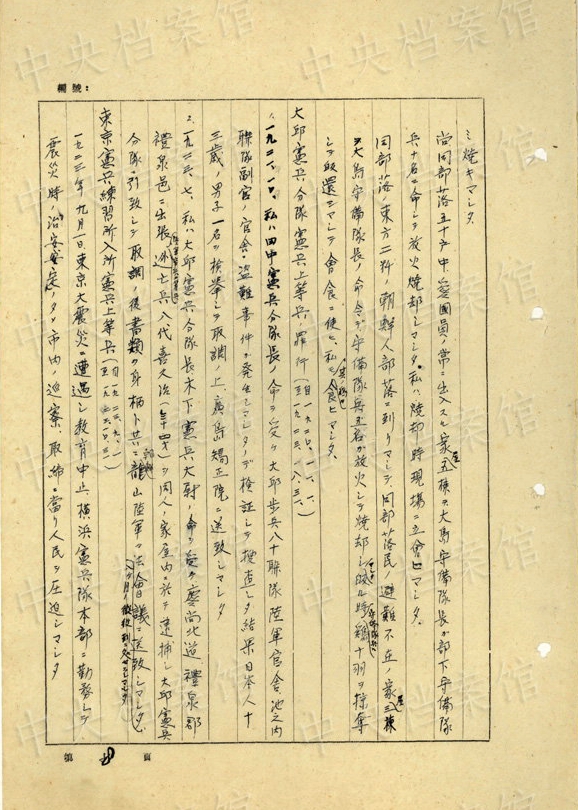 編號:
ミ焼キマシタ
尚同部落五十戸中、愛國團ノ常ニ出入スル家屋五棟ヲ大馬守備隊長ガ部下守備隊
兵十名ニ命シテ放火焼却シマシタ。私ハ焼却時現場ニ立會ヒマシタ。
同部落ノ東方二粁ノ朝鮮人部落ニ到リマシテ同部落民ノ避難不在ノ家屋三棟
ヲ大馬守備隊長ノ命令デ守備隊兵五名ガ放火シテ焼却シ鶏十羽ヲ掠奪
シテ取還シマシテ會食ニ使ヒ私モ食ヒマシタ
大邱憲兵分隊憲兵上等兵ノ罪行(自一九二〇、一一、一 至一九二三、八、三一)
1、一九二一、一〇、私ハ田中憲兵分隊長ノ命ヲ受ケ大邱步兵八十聯隊陸軍官舎池之内
聯隊副官ノ官舎ニ盗難事件ガ発生シマシタノデ検証シテ捜査シタ結果日本人十
三歳ノ男子一名ヲ検挙シテ取調ノ上、廣島矯正院ニ送致シマシタ
2、一九二三、七、私ハ大邱憲兵分隊長木下憲兵大尉ノ命ヲ受ケ慶尚北道禮泉郡
禮泉邑ニ出張逃亡兵八代喜大治(二十四才)ヲ同人ノ家屋内ニ於テ逮捕シ大邱憲兵
分隊ニ引致シテ取調ノ後書類ヲ身柄ト共ニ龍山陸軍軍法會議ニ送致シマシタ。
東京憲兵練習所入所憲兵上等兵(自一九二三、九、一
一九二三年九月一日東京大震災ニ遭遇シ教育中止、横浜憲兵隊本部ニ勤務シテ
震災時ノ治安安定ノタメ市内ノ巡察、取締ニ當リ人民ヲ圧迫シマシタ
第 8 頁
中央档案馆